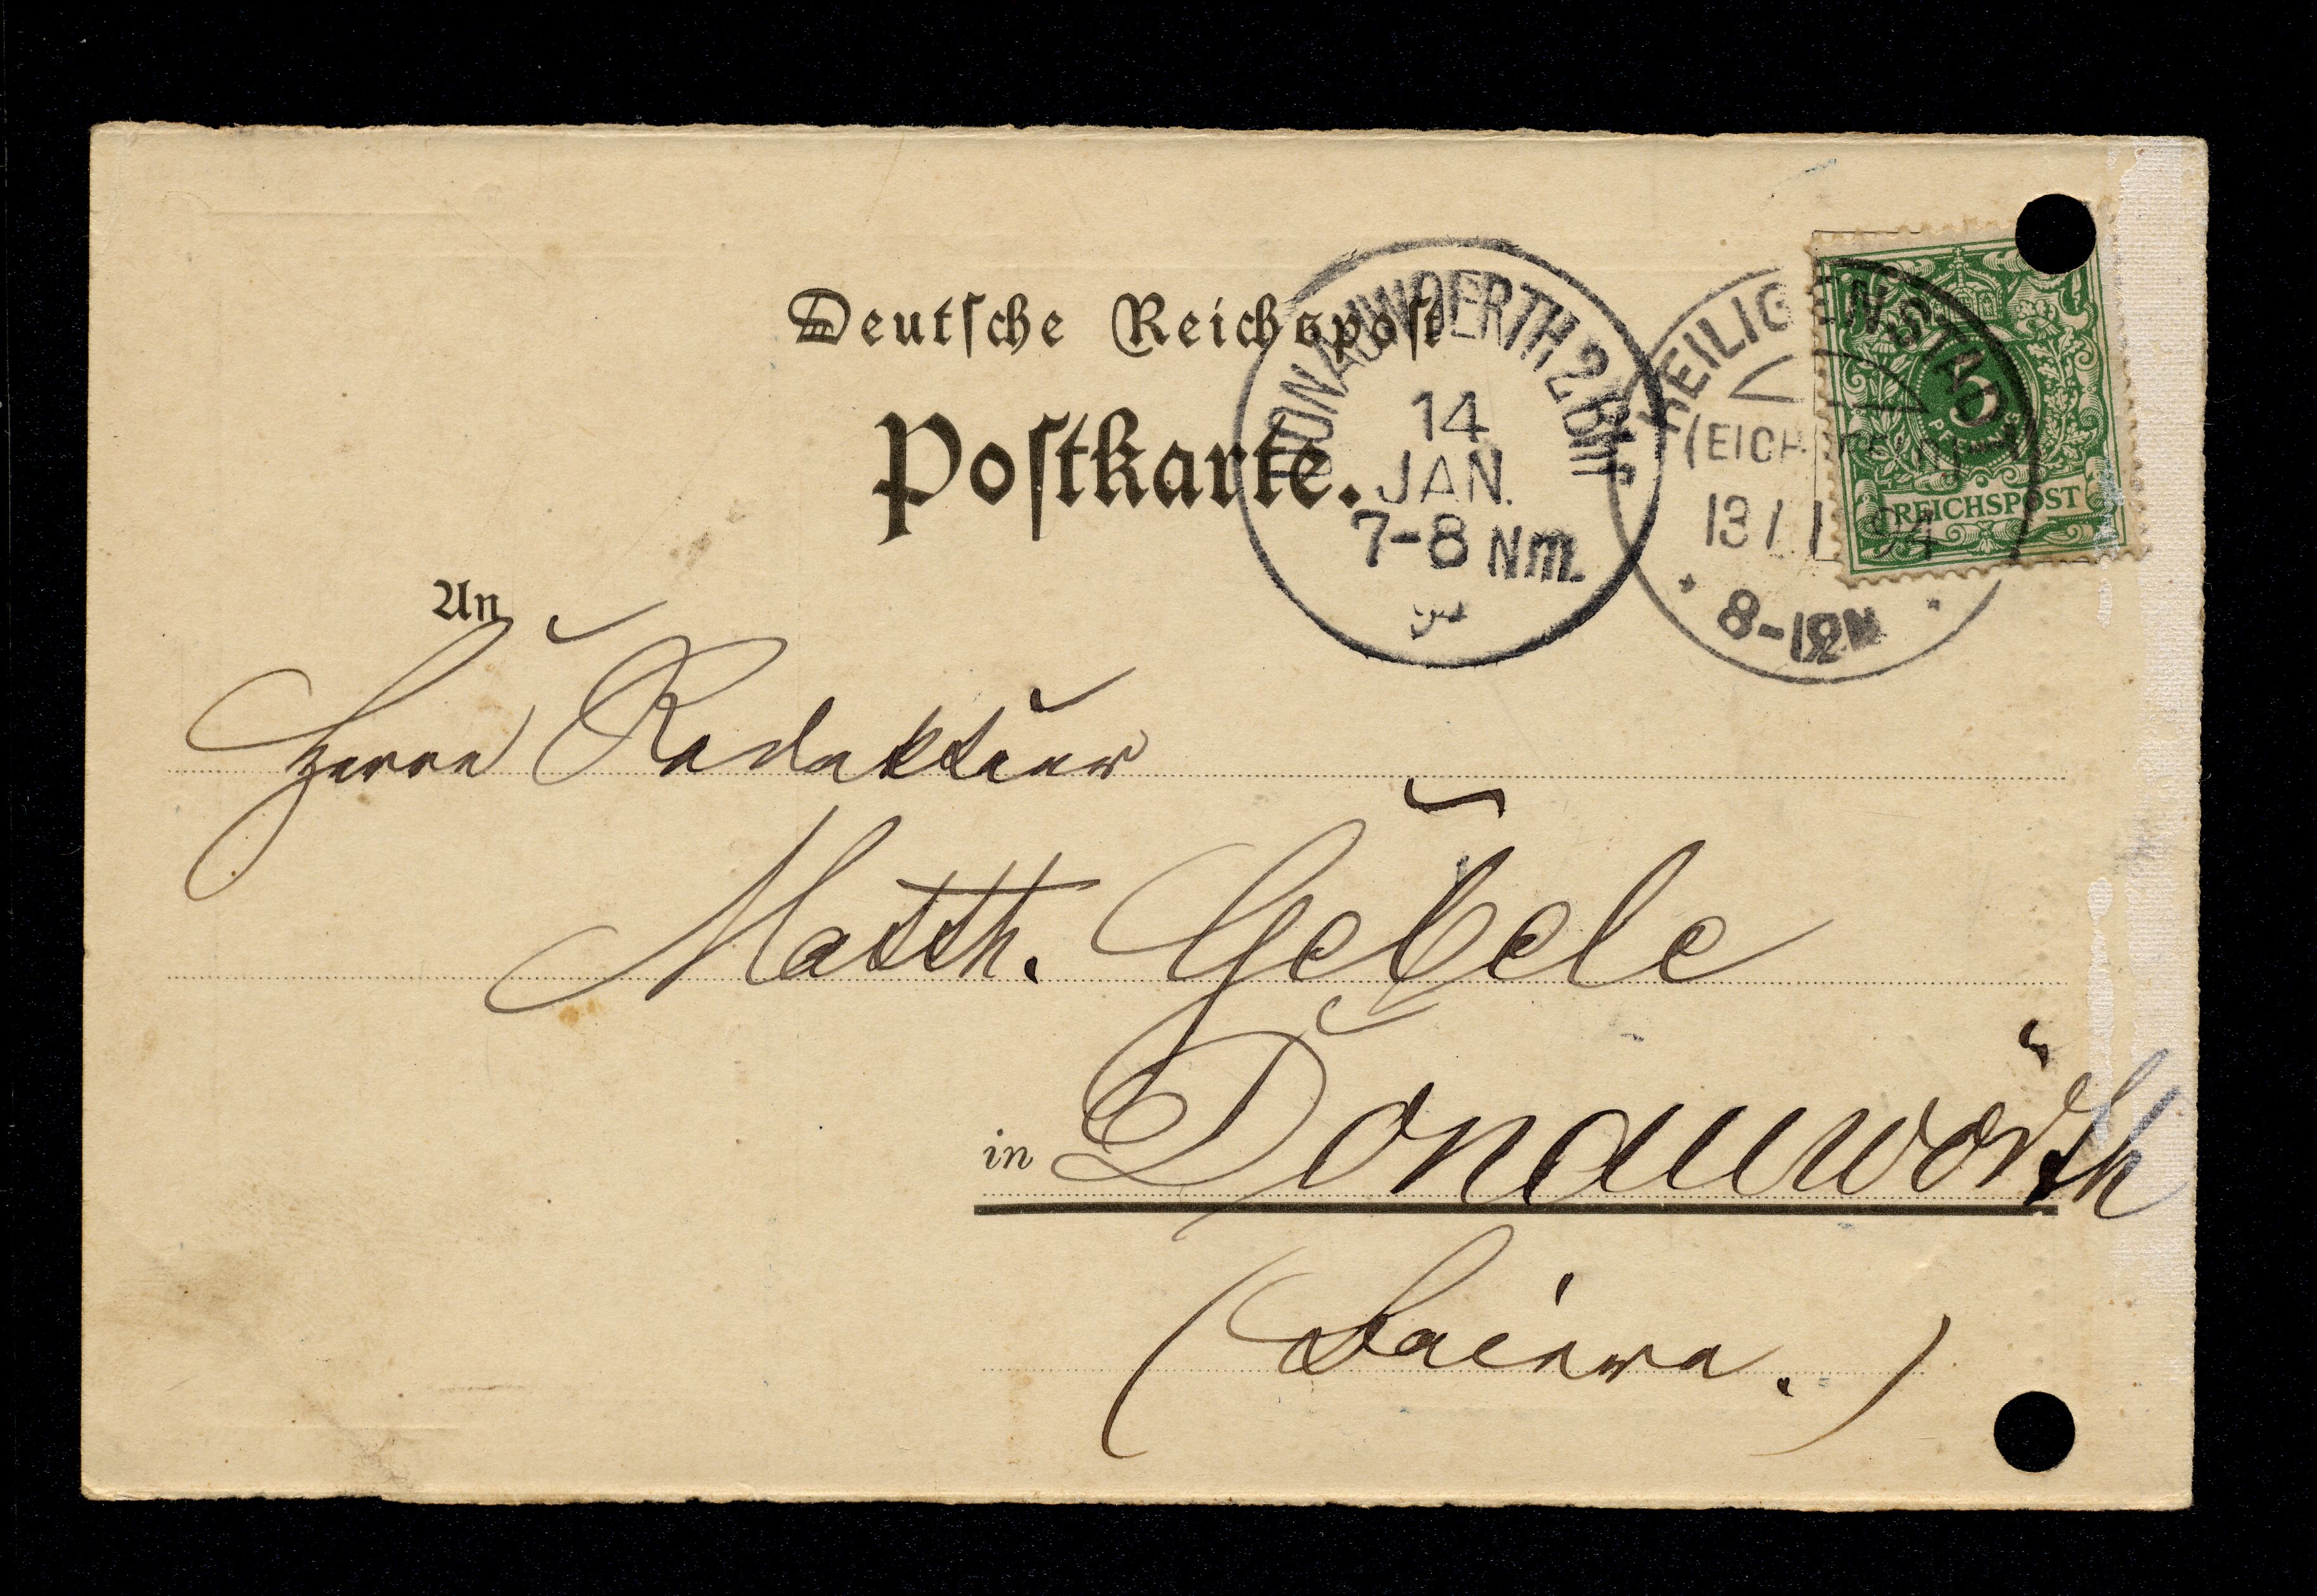 Deutsche Reichspost
Postkarte.
DONAUWOERTH 2 BHF.
14
JAN.
7-8 Nm.
HEILIGENSTADT
(EICHSFELD)
13/1 94
8-12N
5
PFENNIG
REICHSPOST
An
Herrn Redakteur
Matth. Gebele
in Donauwörth
(Baiern.)